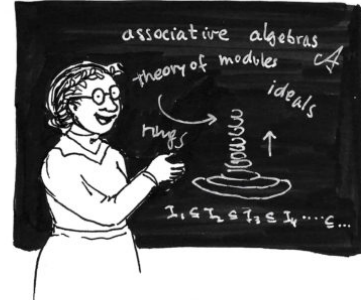 associative algebras
theory of modules
A
ideals
rings
I₁ ⊆ I₂ ⊆ I₃ ⊆ I₄ ····⊆...